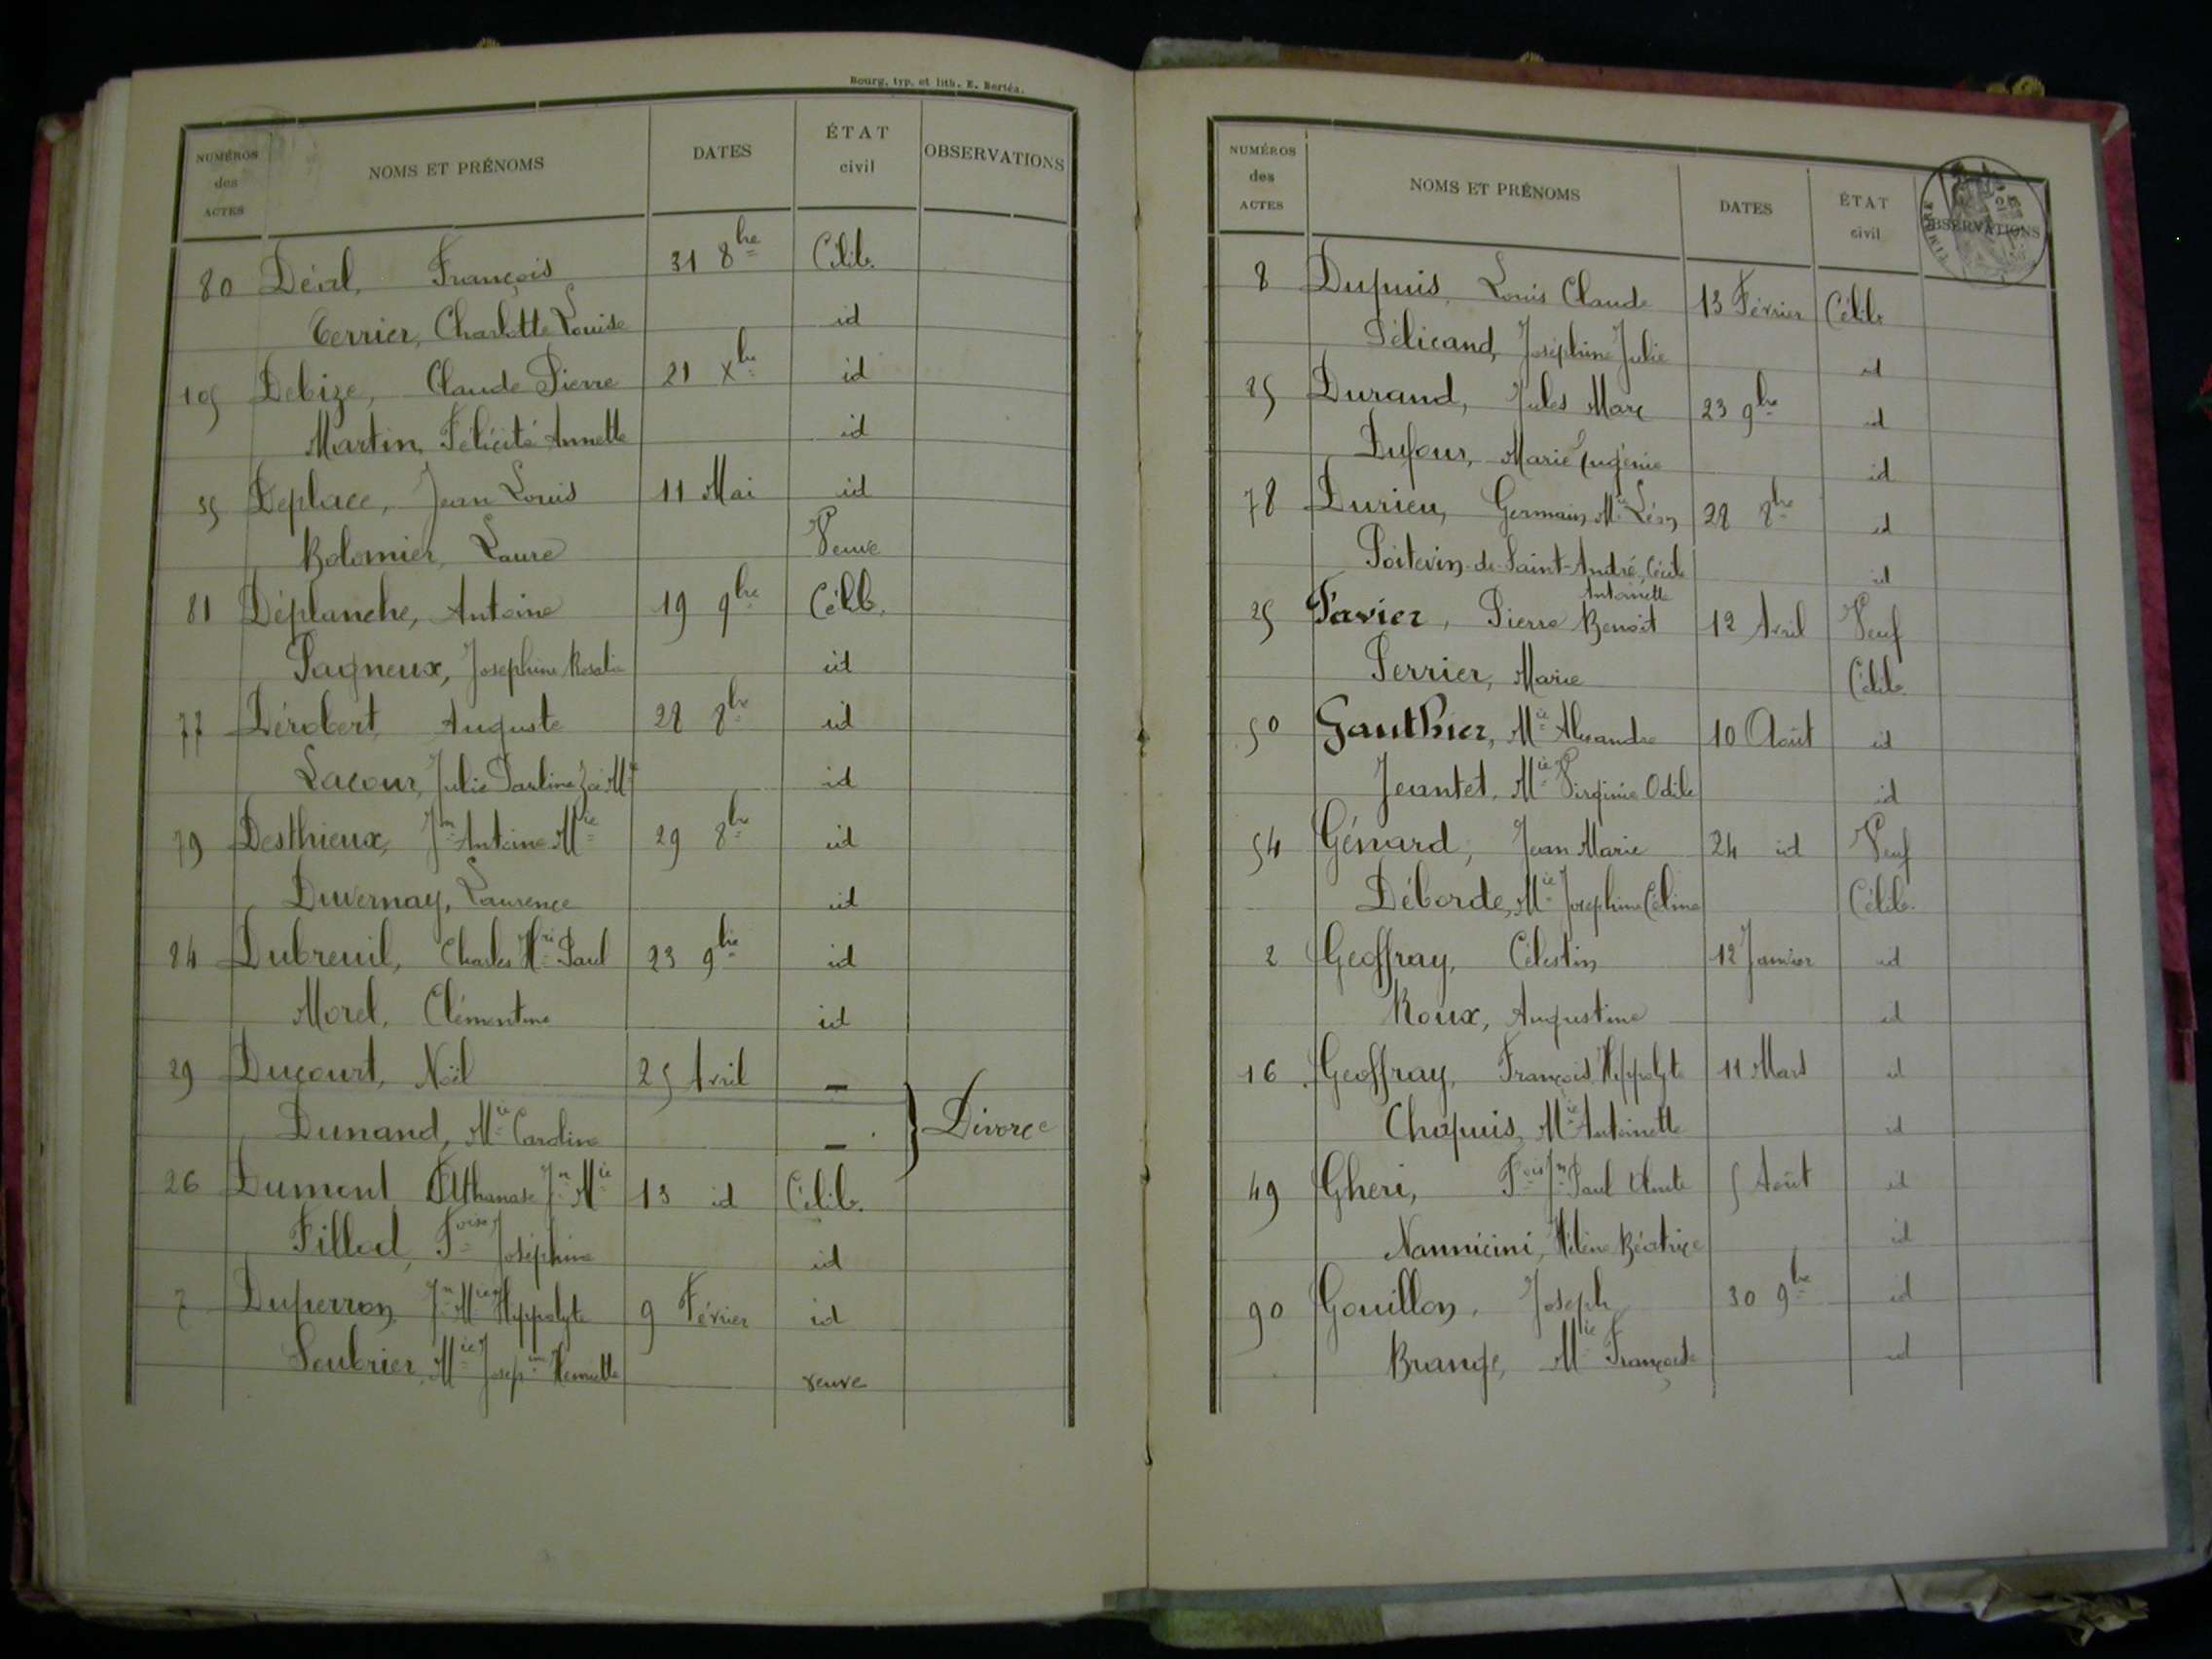 Bourg, typ. et lith. E. Bertéa.
NUMÉROS des ACTES NOMS ET PRÉNOMS DATES ÉTAT civil OBSERVATIONS
80 Déal, François 31 8bre Célib.
Terrier, Charlotte Louise id
105 Debize, Claude Pierre 21 Xbre id
Martin, Félicité Annette id
35 Deplace, Jean Louis 11 Mai id
Bolomier, Laure Veuve
81 Déplanche, Antoine 19 9bre Célib.
Pagneux, Josephine Rosalie id
77 Dérobert, Auguste 28 8bre id
Lacour, Julie Pauline Zoé Mie id
79 Desthieux, Jn Antoine Mie 29 8bre id
Duvernay, Laurence id
84 Dubreuil, Charles Hri Paul 23 9bre id
Morel, Clémentine id
29 Ducourt, Noël 25 Avril —
Dunand, Mie Caroline — Divorce
26 Dumont Athanase Jn Mie 13 id Célib.
Fillod, Foise Joséphine id
7 Duperron, Jn Mie Hippolyte 9 Février id
Soubrier, Mie Josepine Henriette veuve
NUMÉROS des ACTES NOMS ET PRÉNOMS DATES ÉTAT civil OBSERVATIONS
TIMBRE
8 Dupuis, Louis Claude 13 Février Célib.
Pélicand, Joséphine Julie id
85 Durand, Jules Marc 23 9bre id
Dufour, Marie Eugénie id
78 Durieu, Germain Mie Léon 28 8bre id
Poitevin-de-Saint-André, Cécile id
Antoinette
25 Favier, Pierre Benoît 12 Avril Veuf
Perrier, Marie Célib.
50 Gauthier, Mie Alexandre 10 Août id
Jeantet, Mie Virginie Odile id
54 Génard, Jean Marie 24 id Veuf
Déborde, Mie Josephine Céline Célib.
2 Geoffray, Célestin 12 Janvier id
Roux, Augustine id
16 Geoffray, François Hippolyte 11 Mars id
Chapuis, Mie Antoinette id
49 Gheri, Fois Jn Paul 5 Août id
Nannicini, Hélène Béatrice id
90 Gouillon, Joseph 30 9bre id
Brange, Mie Françoise id